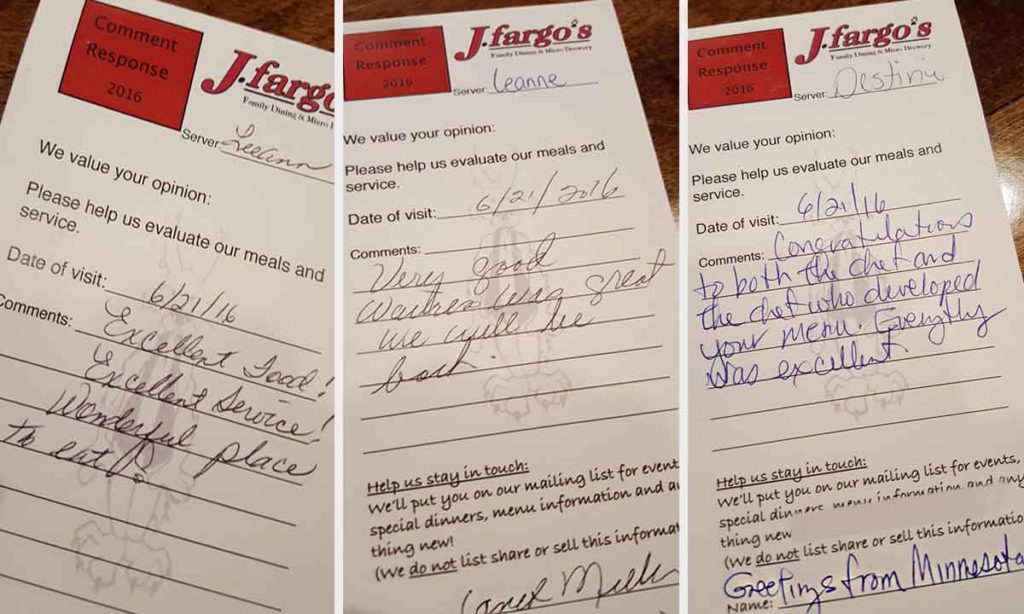 Comment
Response
2016
J.fargo's
Family Dining & Micro
Server LeeAnn
We value your opinion:
Please help us evaluate our meals and
service.
Date of visit: 6/21/16
Comments: Excellent Food!
Excellent Service!
Wonderful place
to eat!
Comment
Response
2016
J.fargo's
Family Dining & Micro Brewery
Server Leanne
We value your opinion:
Please help us evaluate our meals and
service.
Date of visit: 6/21/2016
Comments:
Very good
Waitress was great
we will be
back
Help us stay in touch:
We'll put you on our mailing list for event
special dinners, menu information and a
thing new!
(We do not list share or sell this informat
Comment
Response
2016
J.fargo's
Family Dining & Micro Brewery
Server Destinie
We value your opinion:
Please help us evaluate our meals and
service.
Date of visit: 6/21/16
Comments: Congratulations
to both the chef and
the chef who developed
your menu. Everythg
was excellent.
Help us stay in touch:
We'll put you on our mailing list for events,
special dinners, menu information and any
thing new
(We do not list share or sell this informatio
Greetings from Minnesota
Name: